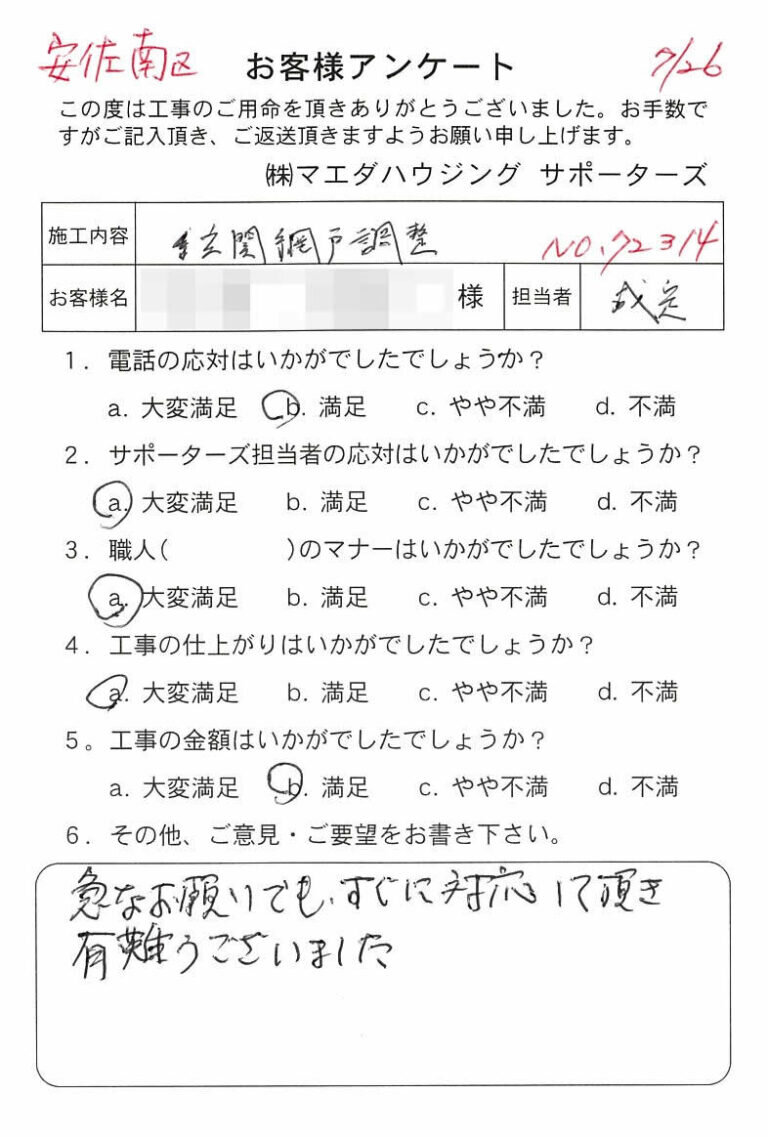 安佐南区 お客様アンケート 7/26
この度は工事のご用命を頂きありがとうございました。お手数で
すがご記入頂き、ご返送頂きますようお願い申し上げます。
㈱マエダハウジング サポーターズ
施工内容 玄関網戸調整 NO.72314
お客様名 様 担当者
1. 電話の応対はいかがでしたでしょうか？
a. 大変満足 b. 満足 c. やや不満 d. 不満
2. サポーターズ担当者の応対はいかがでしたでしょうか？
a. 大変満足 b. 満足 c. やや不満 d. 不満
3. 職人( )のマナーはいかがでしたでしょうか？
a. 大変満足 b. 満足 c. やや不満 d. 不満
4. 工事の仕上がりはいかがでしたでしょうか？
a. 大変満足 b. 満足 c. やや不満 d. 不満
5。工事の金額はいかがでしたでしょうか？
a. 大変満足 b. 満足 c. やや不満 d. 不満
6. その他、ご意見・ご要望をお書き下さい。
急なお願いでも、すぐに対応して頂き
有難うございました